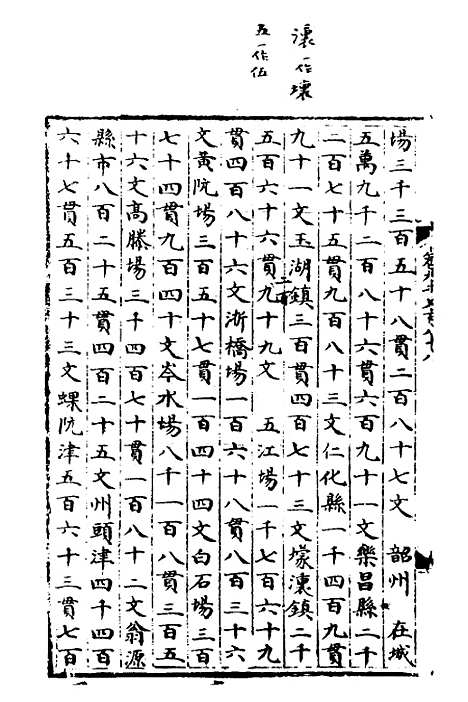 瀼一作壤
五一作伍
場三千三百五十八貫二百八十七文　韶州　在城
五萬九千二百八十六貫六百九十一文樂昌縣二千
二百七十五貫九百八十三文仁化縣一千四百九貫
九十一文玉湖鎮三百貫四百七十三文㙡瀼鎮二千
五百六十六貫二百九十九文　五江場一千七百六十九
貫四百八十六文浙橋場一百六十八貫八百三十六
文黃阬場三百五十七貫一百四十四文白石場三百
七十四貫九百四十文岑水場八千一百八貫三百五
十六文高勝場三千四百七十貫一百八十二文翁源
縣市八百二十五貫四百二十五文州頭津四千四百
六十七貫五百三十三文螺阬津五百六十三貫七百